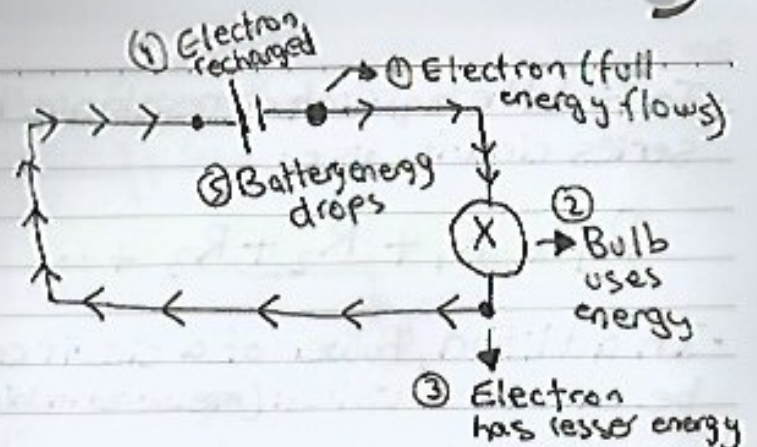 ④ Electron
recharged
① Electron (full
energy flows)
⑤ Battery energy
drops
X
②
Bulb
uses
energy
③ Electron
has lesser energy